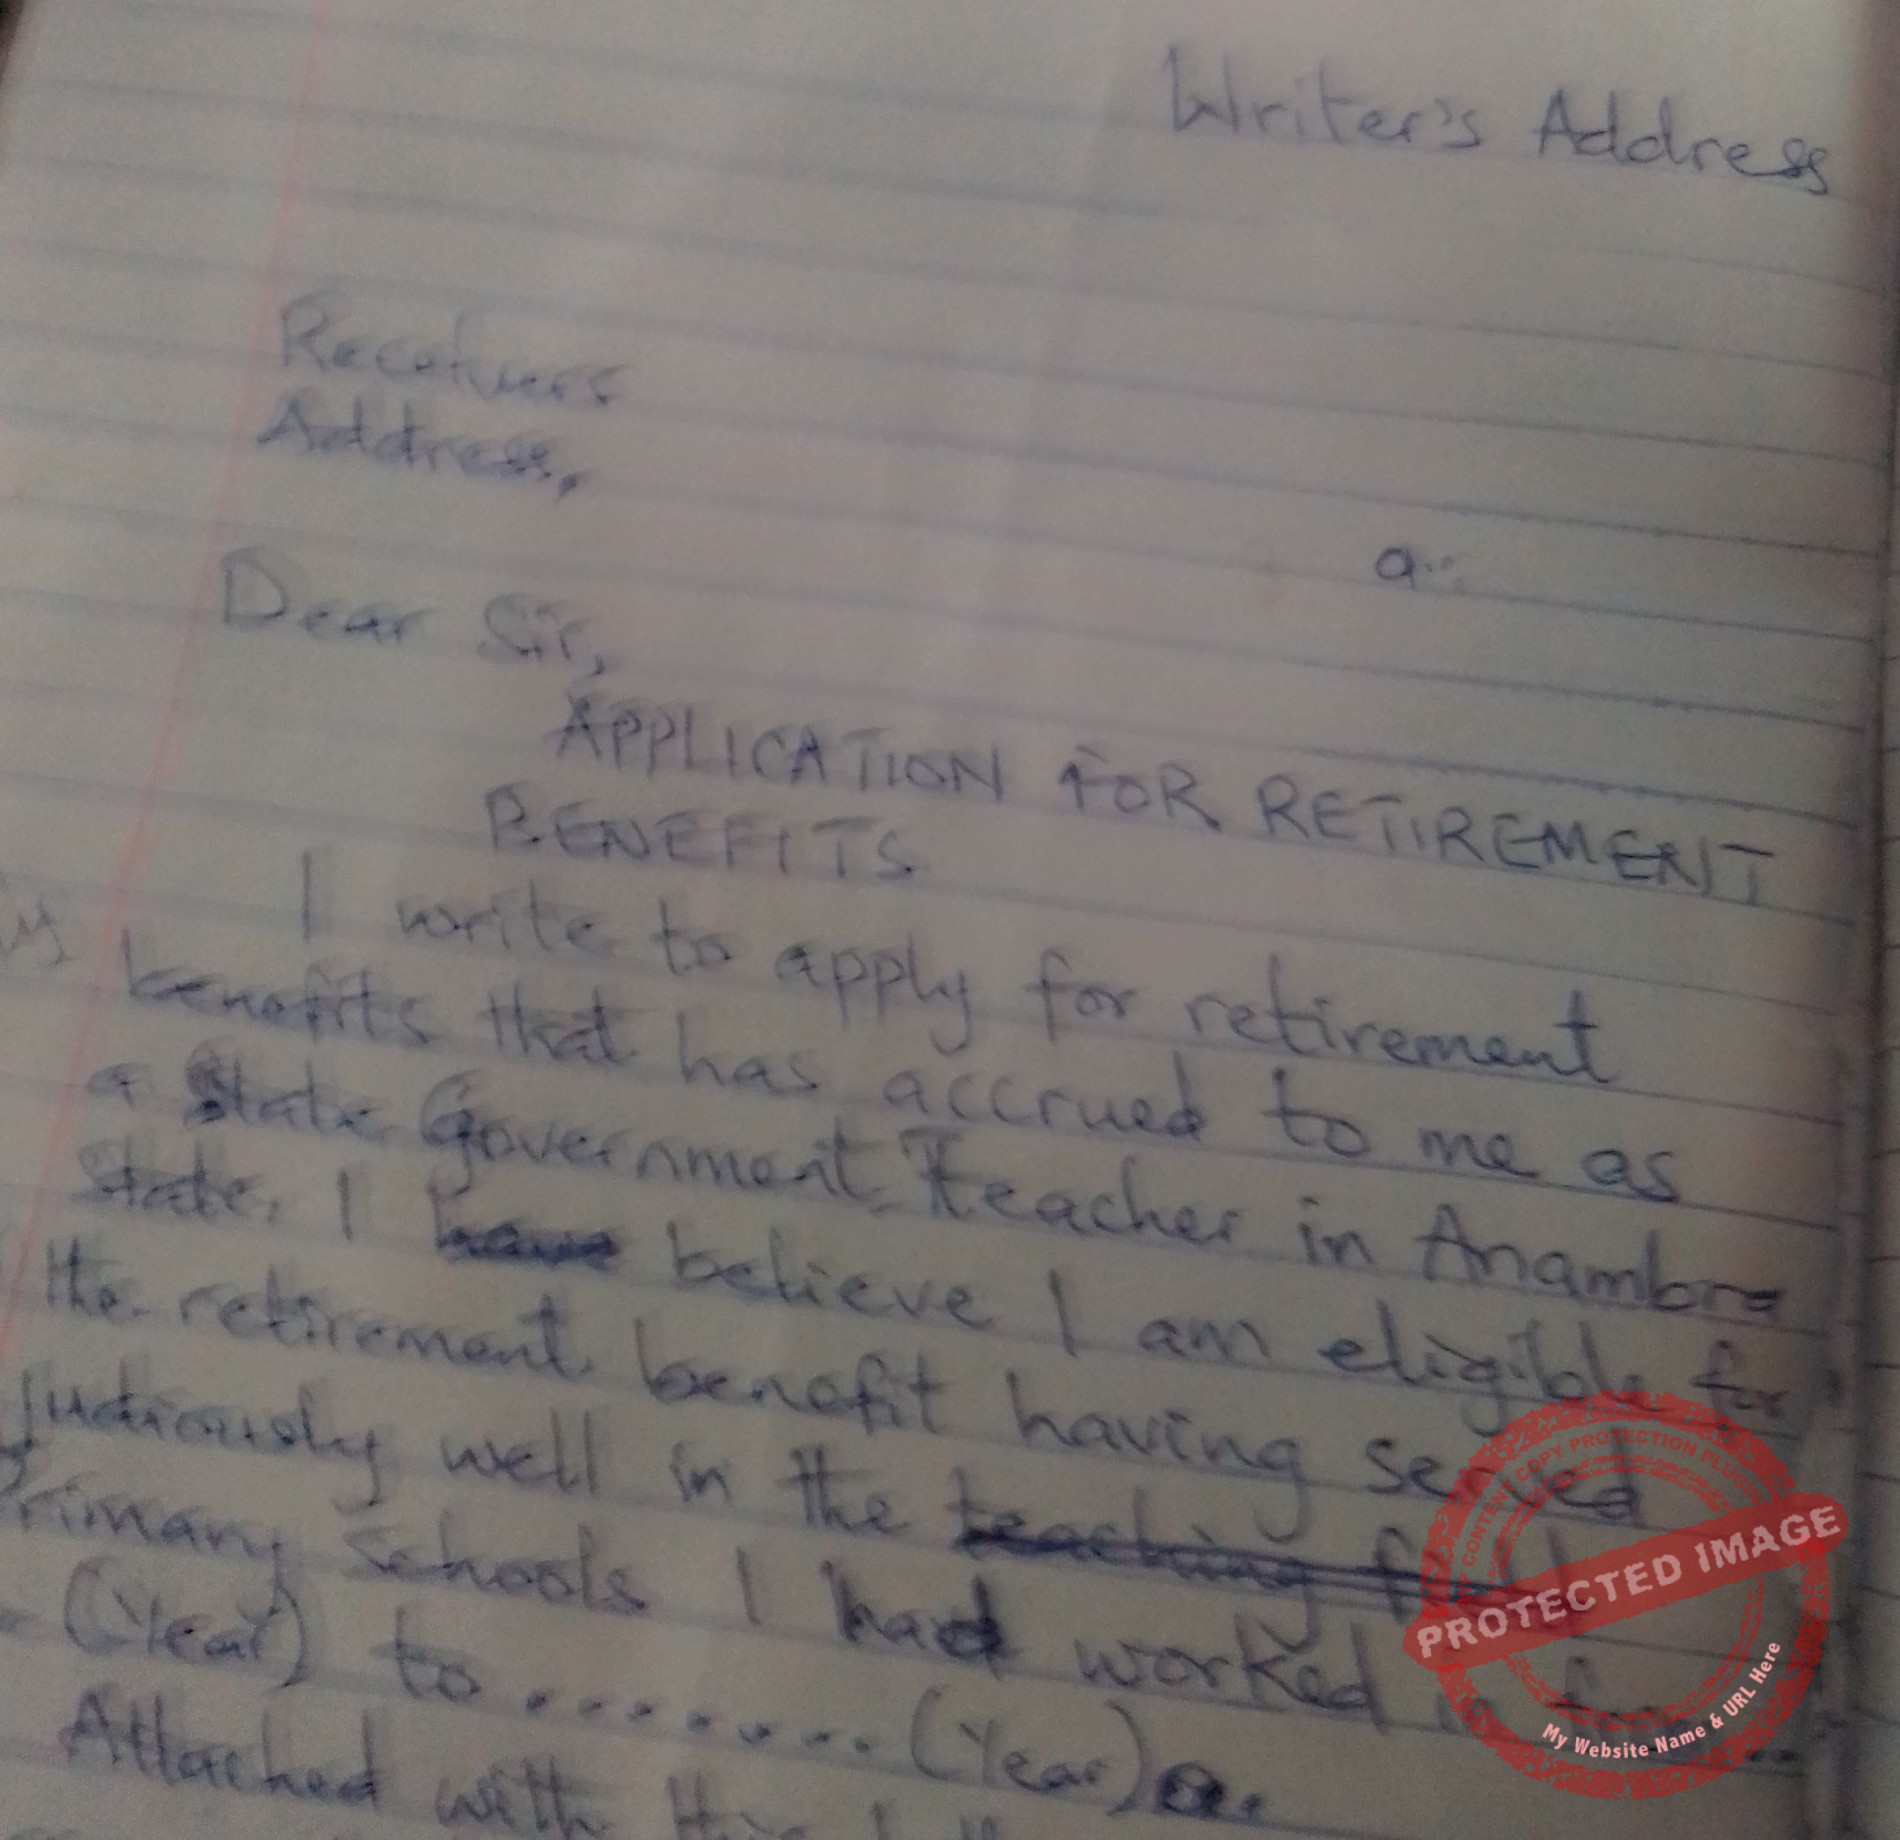 Writer's Address
Receivers
Address,
a..
Dear Sir,
APPLICATION FOR RETIREMENT
BENEFITS
I write to apply for retirement
benefits that has accrued to me as
a State Government Teacher in Anambra
State. I have believe I am eligible for
the retirement benefit having served
Judiciously well in the teaching
Primary Schools I had worked
(Year) to ........ (Year).
Attached with this
WP CONTENT COPY PROTECTION PLUGIN
PROTECTED IMAGE
My Website Name & URL Here